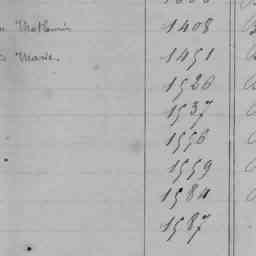 Mathurin 1408
Marie. 1451
1526
1537
1556
1559
1584
1587